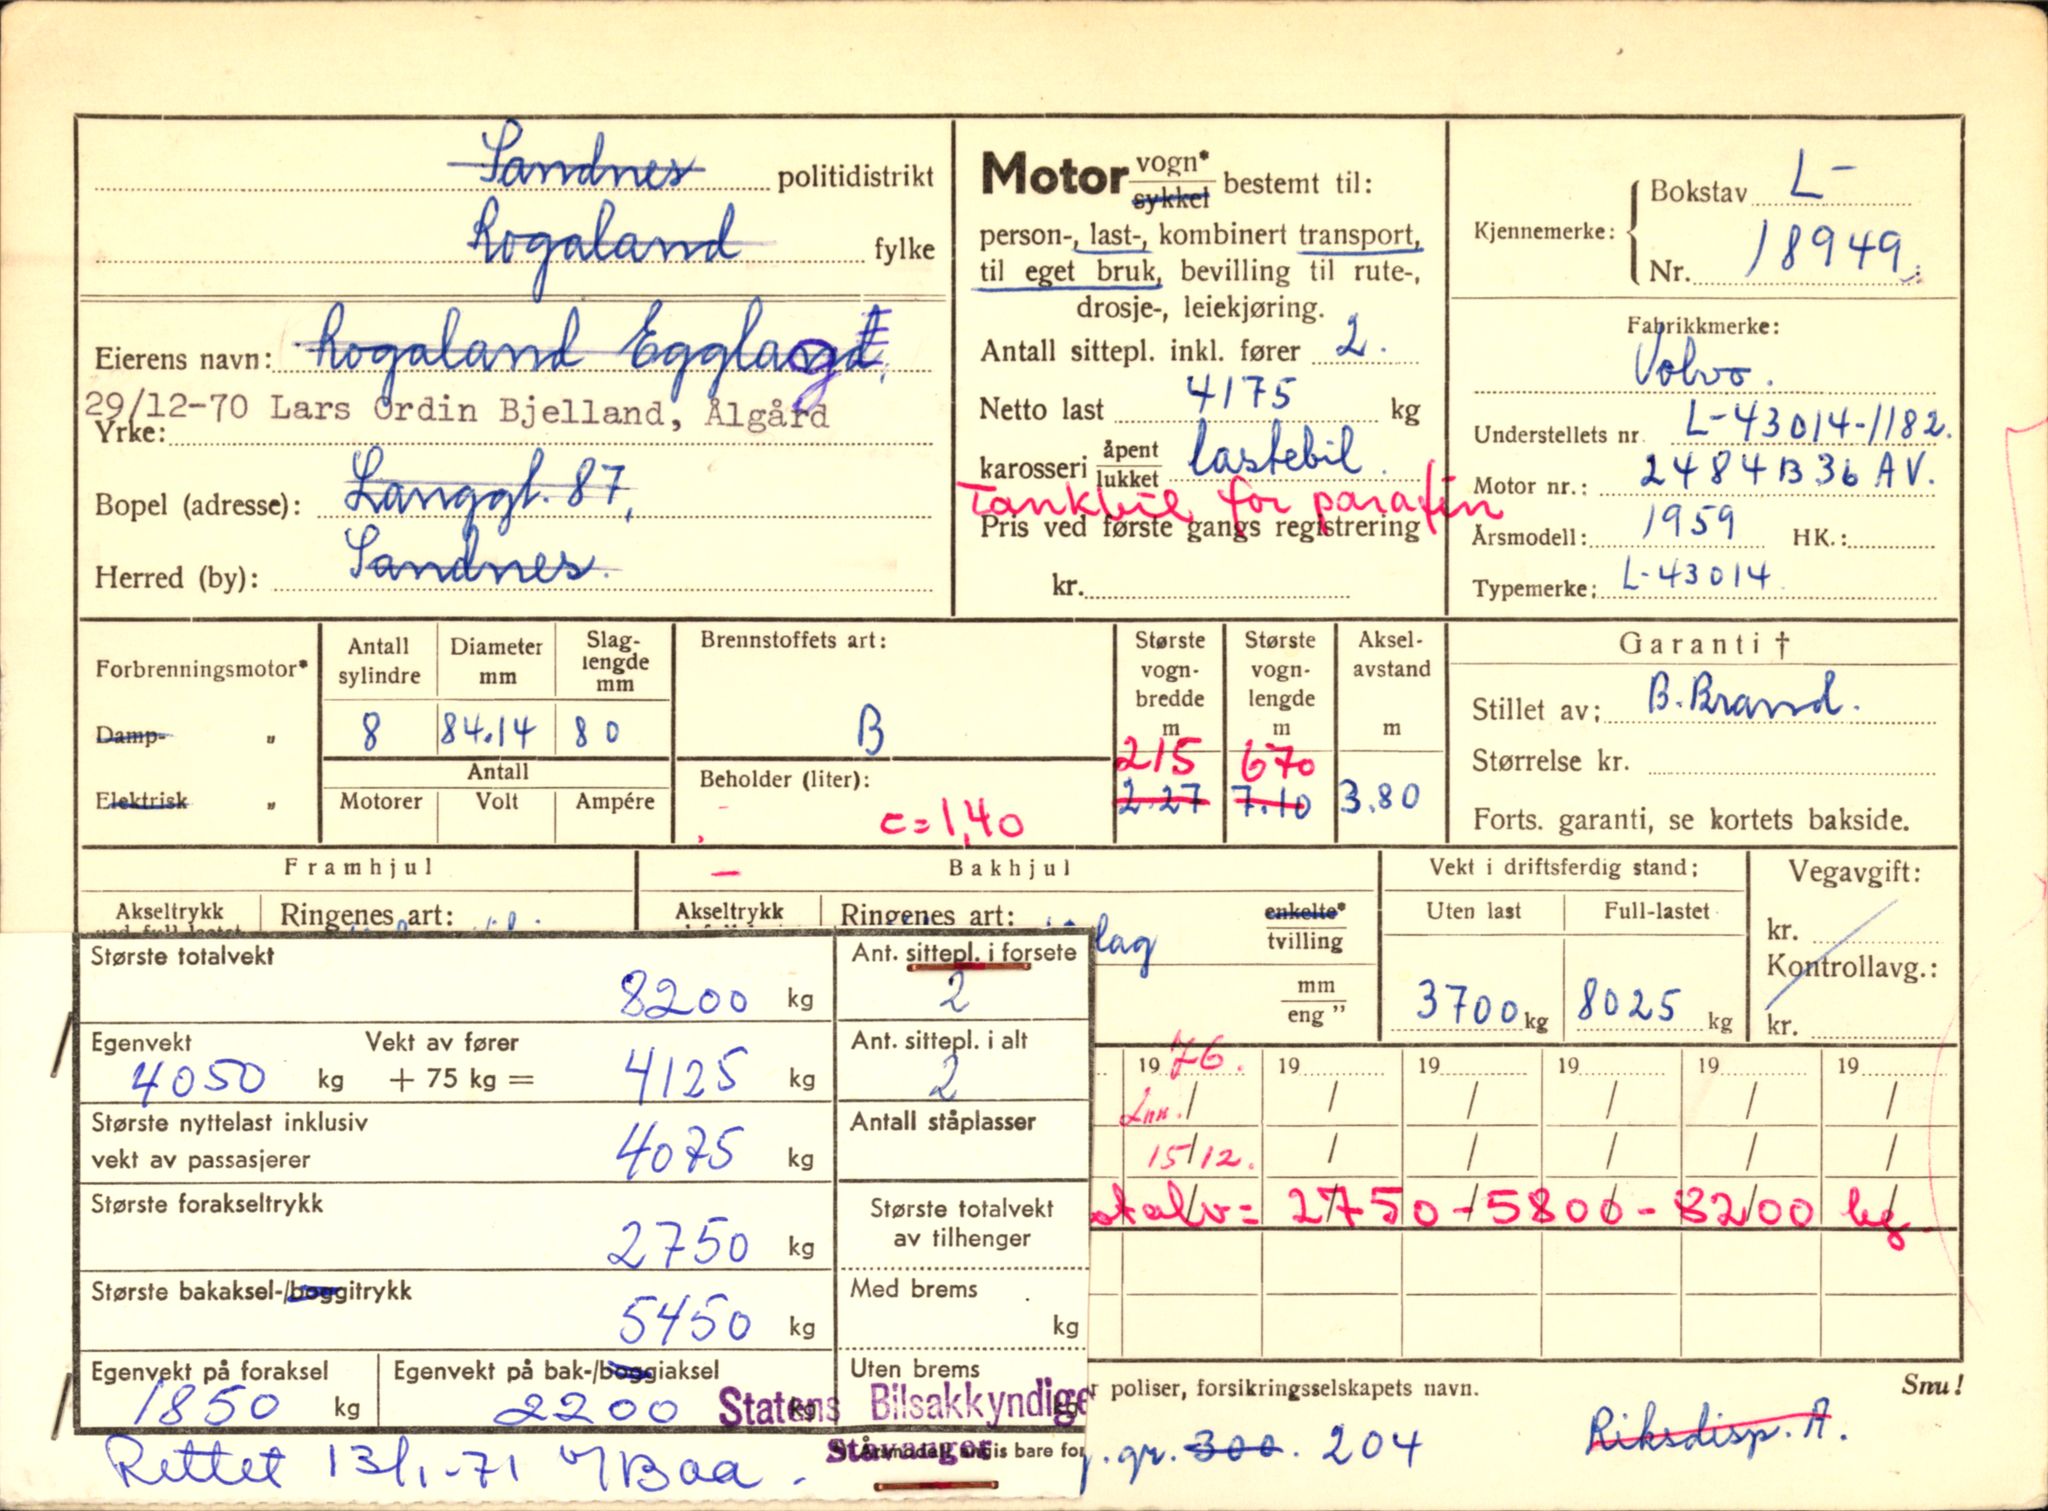 Sandnes politidistrikt
Rogaland fylke
Eierens navn: Rogaland Egglag
29/12-70 Lars Ordin Bjelland, Ålgård
Yrke:
Bopel (adresse): Langgt. 87,
Herred (by): Sandnes.
Motor vogn* sykkel bestemt til:
person-, last-, kombinert transport,
til eget bruk, bevilling til rute-,
drosje-, leiekjøring.
Antall sittepl. inkl. fører 2.
Netto last 4175 kg
karosseri åpent lukket lastebil.
Tankbil for parafin
Pris ved første gangs registrering
kr.
Kjennemerke: Bokstav L-
Nr. 18949
Fabrikkmerke:
Volvo.
Understellets nr. L-43014-1182.
Motor nr.: 2484B36 AV.
Årsmodell: 1959 HK.:
Typemerke: L-43014
Forbrenningsmotor*
Damp- „
Elektrisk „
Antall sylindre
8
Diameter mm
84.14
Slag-lengde mm
80
Antall
Motorer Volt Ampére
Brennstoffets art:
B
Beholder (liter):
c=1,40
Største vogn-bredde m
215
2.27
Største vogn-lengde m
670
7.10
Aksel-avstand m
3.80
Garanti †
Stillet av: B. Brand.
Størrelse kr.
Forts. garanti, se kortets bakside.
Framhjul
Akseltrykk Ringenes art:
Bakhjul
Akseltrykk Ringenes art: lag
enkelte* tvilling
mm
eng ”
Vekt i driftsferdig stand:
Uten last Full-lastet
3700 kg 8025 kg
Vegavgift:
kr.
Kontrollavg.:
kr.
Største totalvekt
8200 kg
Egenvekt Vekt av fører
4050 kg + 75 kg = 4125 kg
Største nyttelast inklusiv
vekt av passasjerer 4075 kg
Største forakseltrykk
2750 kg
Største bakaksel-/boggitrykk
5450 kg
Egenvekt på foraksel
1850 kg
Egenvekt på bak-/boggiaksel
2200 kg
Ant. sittepl. i forsete
2
Ant. sittepl. i alt
2
Antall ståplasser
Største totalvekt
av tilhenger
Med brems
kg
Uten brems
kg
Statens Bilsakkyndige
Stavanger
Rettet 13/1-71
1976. 19 19 19 19 19
Inn. / / / / / /
15/12. / / / / /
2750 - 5800 - 8200 kg
poliser, forsikringsselskapets navn.
Snu!
is bare for
gr. 300. 204
Riksdisp. A.